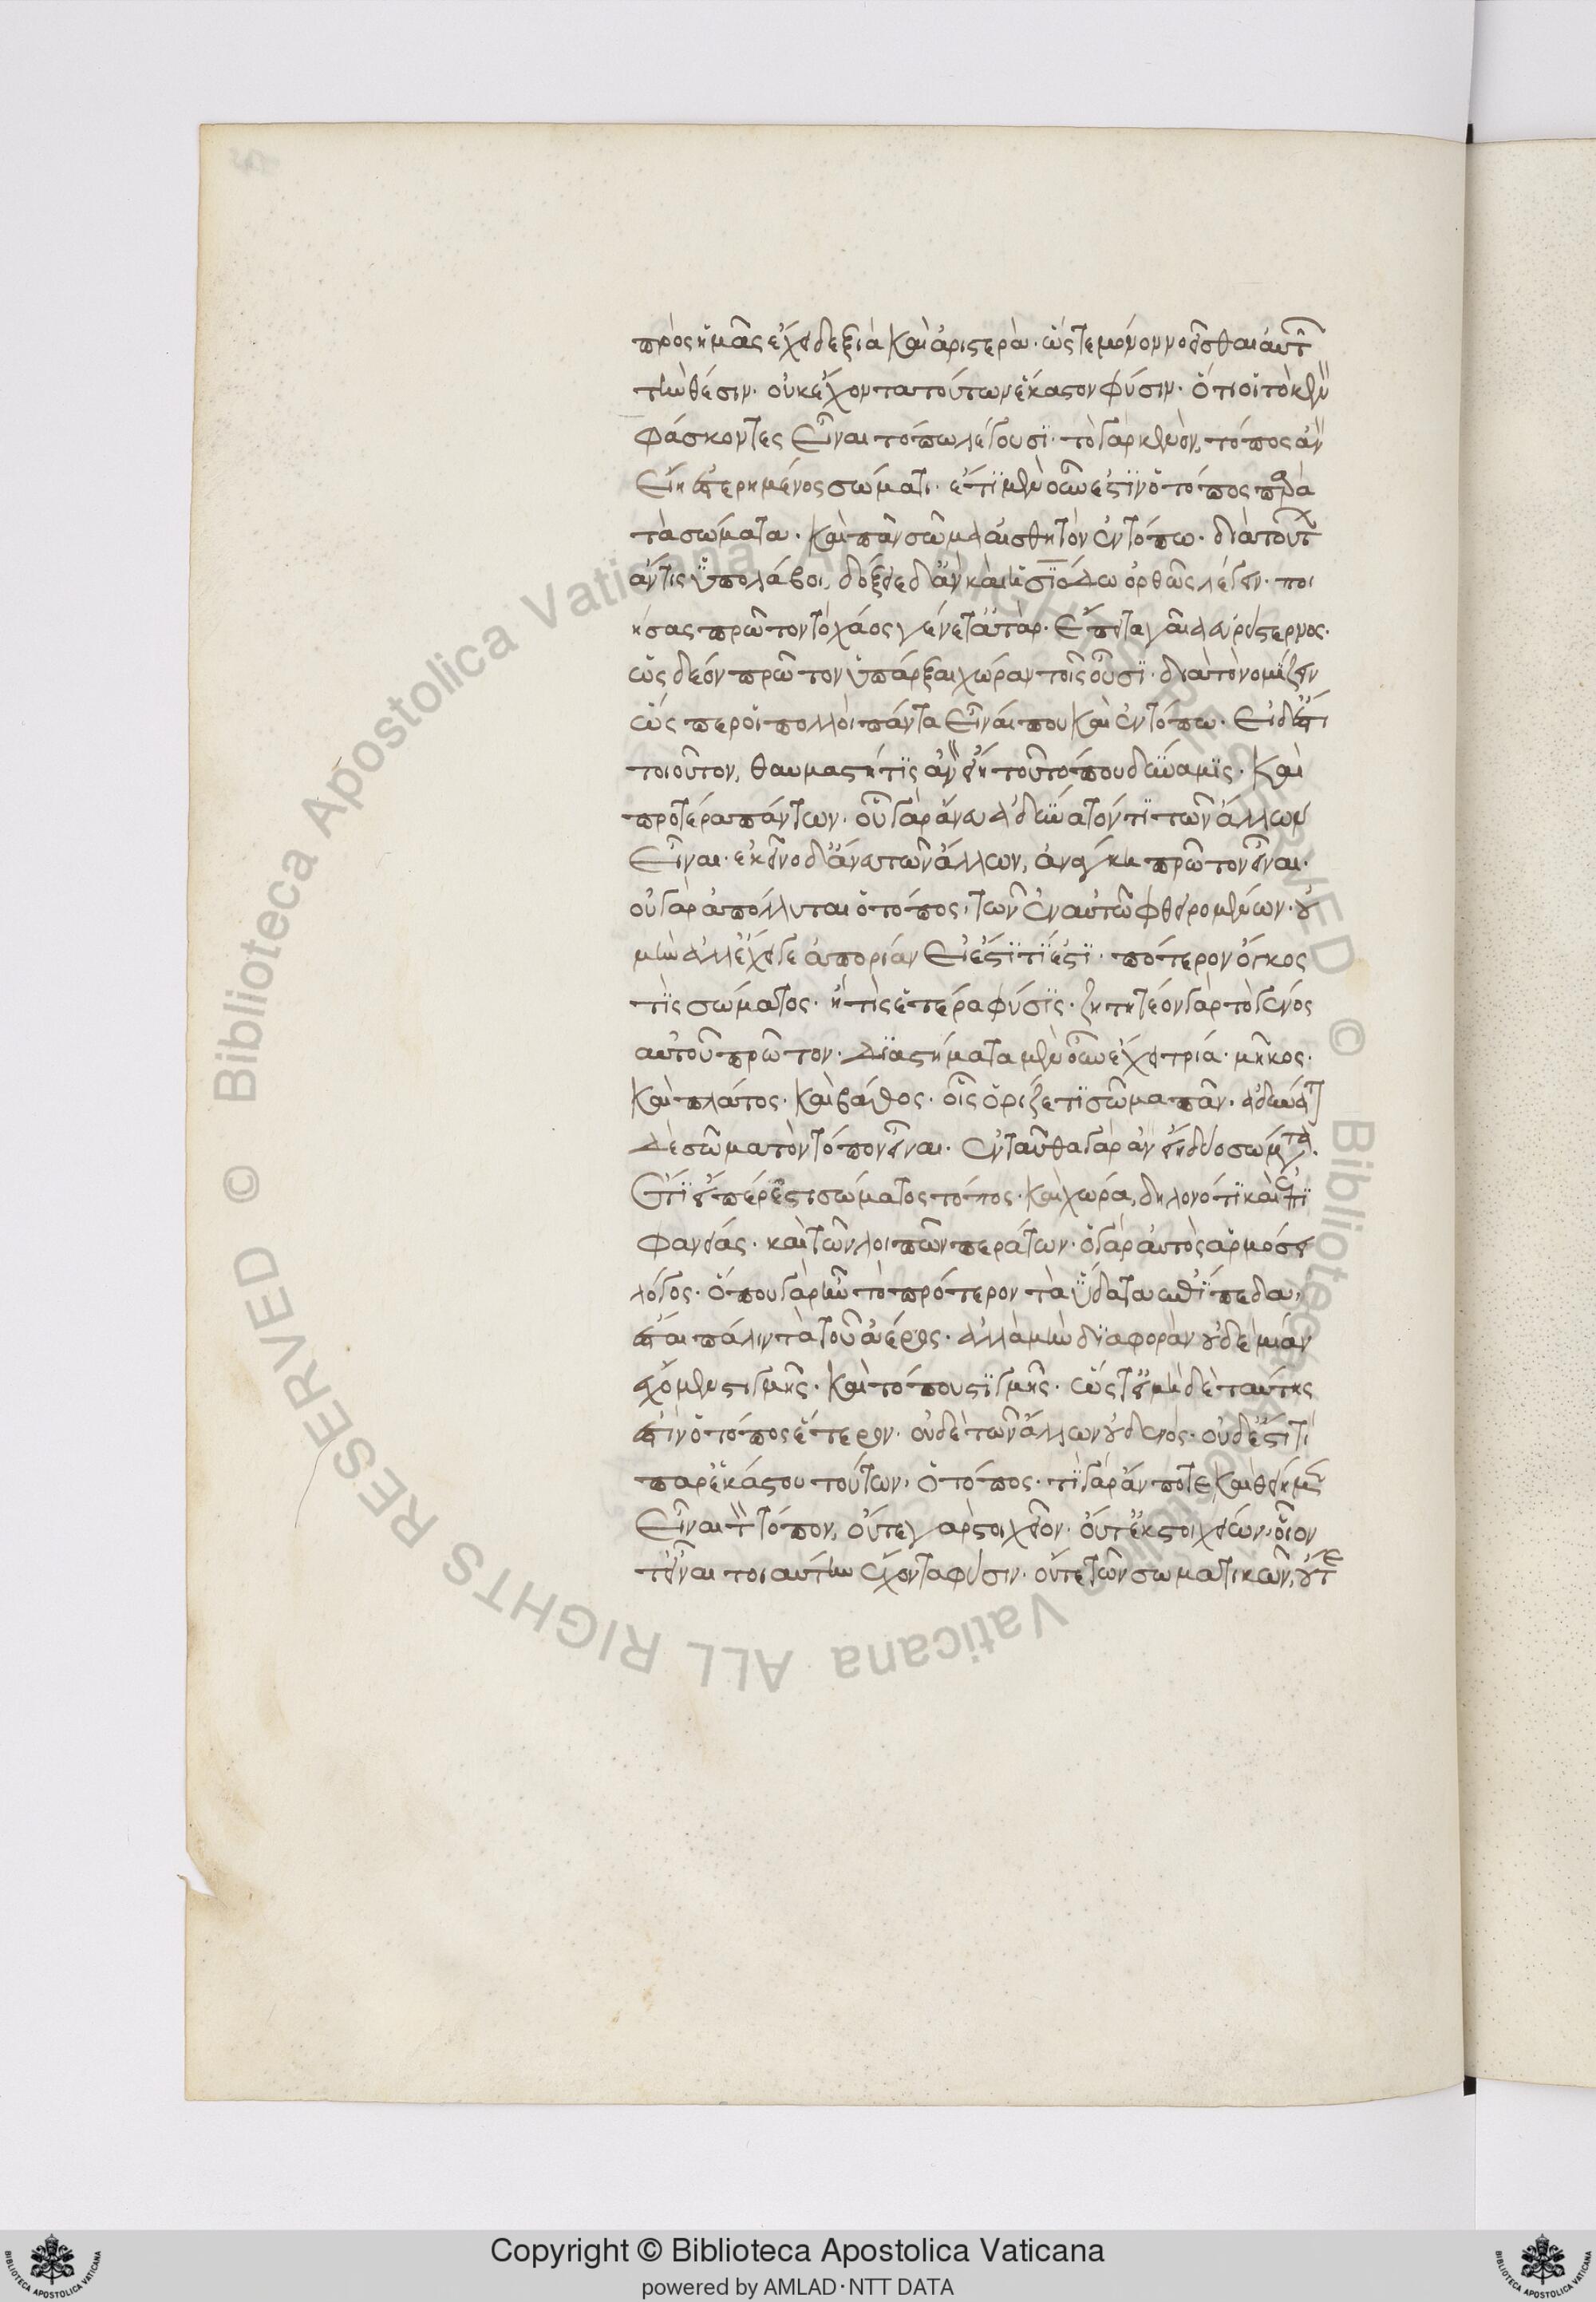 πρὸς ἡμᾶς ἔχει δεξιὰ καὶ ἀριστερὰ· ὥστε μόνον νοεῖσθαι αὐτῶν
τὴν θέσιν· οὐκ ἔχοντα τούτων ἕκαστον φύσιν· ὅτι οἱ τὸ κενὸν
φάσκοντες εἶναι τόπω λέγουσι· τὸ γὰρ κενὸν, τόπος ἂν
εἴη ἐστερημένος σώματι· ἔτι μὲν οὖν ἐστὶν ὁ τόπος παρὰ
τὰ σώματα· καὶ πᾶν σῶμα αἰσθητὸν ἐν τόπω· διὰ τούτων
ἄν τις ὑπολάβοι, δόξειε δ' ἂν καὶ ἡσίοδω ὀρθῶς λέγειν· ποι
ήσας πρῶτον τὸ χάος γένετ' αὐτὰρ· ἔπειτα γαῖα εὐρύστερνος·
ὡς δέον πρῶτον ὑπάρξαι χώραν τοῖς οὖσι· διὰ τὸ νομίζειν
ὥσπερ οἱ πολλοὶ πάντα εἶναί που καὶ ἐν τόπω· εἰ δ' ἐστὶ
τοιοῦτον, θαυμαστή τις ἂν εἴη τοῦ τόπου δύναμις· καὶ
προτέρα πάντων· οὗ γὰρ ἄνευ ἀδύνατόν τι τῶν ἄλλων
εἶναι· ἐκεῖνο δ' ἄνευ τῶν ἄλλων, ἀνάγκη πρῶτον εἶναι·
οὐ γὰρ ἀπόλλυται ὁ τόπος, τῶν ἐν αὐτῶ φθειρομένων· οὐ
μὴν ἀλλ' ἔχει γε ἀπορίαν εἰ ἔστι τί ἐστι· πότερον ὄγκος
τὶς σώματος· ἤ τις ἑτέρα φύσις· ζητητέον γὰρ τὸ γένος
αὐτοῦ πρῶτον· διαστήματα μὲν οὖν ἔχει τρία· μῆκος·
καὶ πλάτος· καὶ βάθος· οἷς ὁρίζεται σῶμα πᾶν· ἀδύνατον
δὲ σῶμα τὸν τόπον εἶναι· ἐν ταυτῶ γὰρ ἂν εἴη δύο σώματα·
ἔτι εἴπερ ἔστι σώματος τόπος· καὶ χώρα, δηλονότι καὶ ἐπι
φανείας· καὶ τῶν λοιπῶν περάτων· ὁ γὰρ αὐτὸς ἁρμόσει
λόγος· ὅπου γὰρ ἦν τὸ πρότερον τὰ ὕδατα ἐπίπεδα,
ἔσται πάλιν τὰ τοῦ ἀέρος· ἀλλὰ μὴν διαφορὰν οὐδεμίαν
ἔχομεν στιγμῆς· καὶ τόπου στιγμῆς· ὥστ' εἰ μὴδὲ ταύτης
ἐστὶν ὁ τόπος ἕτερον· οὐδὲ τῶν ἄλλων οὐδενός· οὐδ' ἐστί τι
παρ' ἑκάστου τούτων, ὁ τόπος· τί γὰρ ἄν ποτε καὶ θείημεν
εἶναι τὸν τόπον, οὔτε γὰρ στοιχεῖον· οὔτ' ἐκ στοιχείων, οἷόν
τ' εἶναι τοιαύτην ἔχοντα φύσιν· οὔτε τῶν σωματικῶν, οὔτε